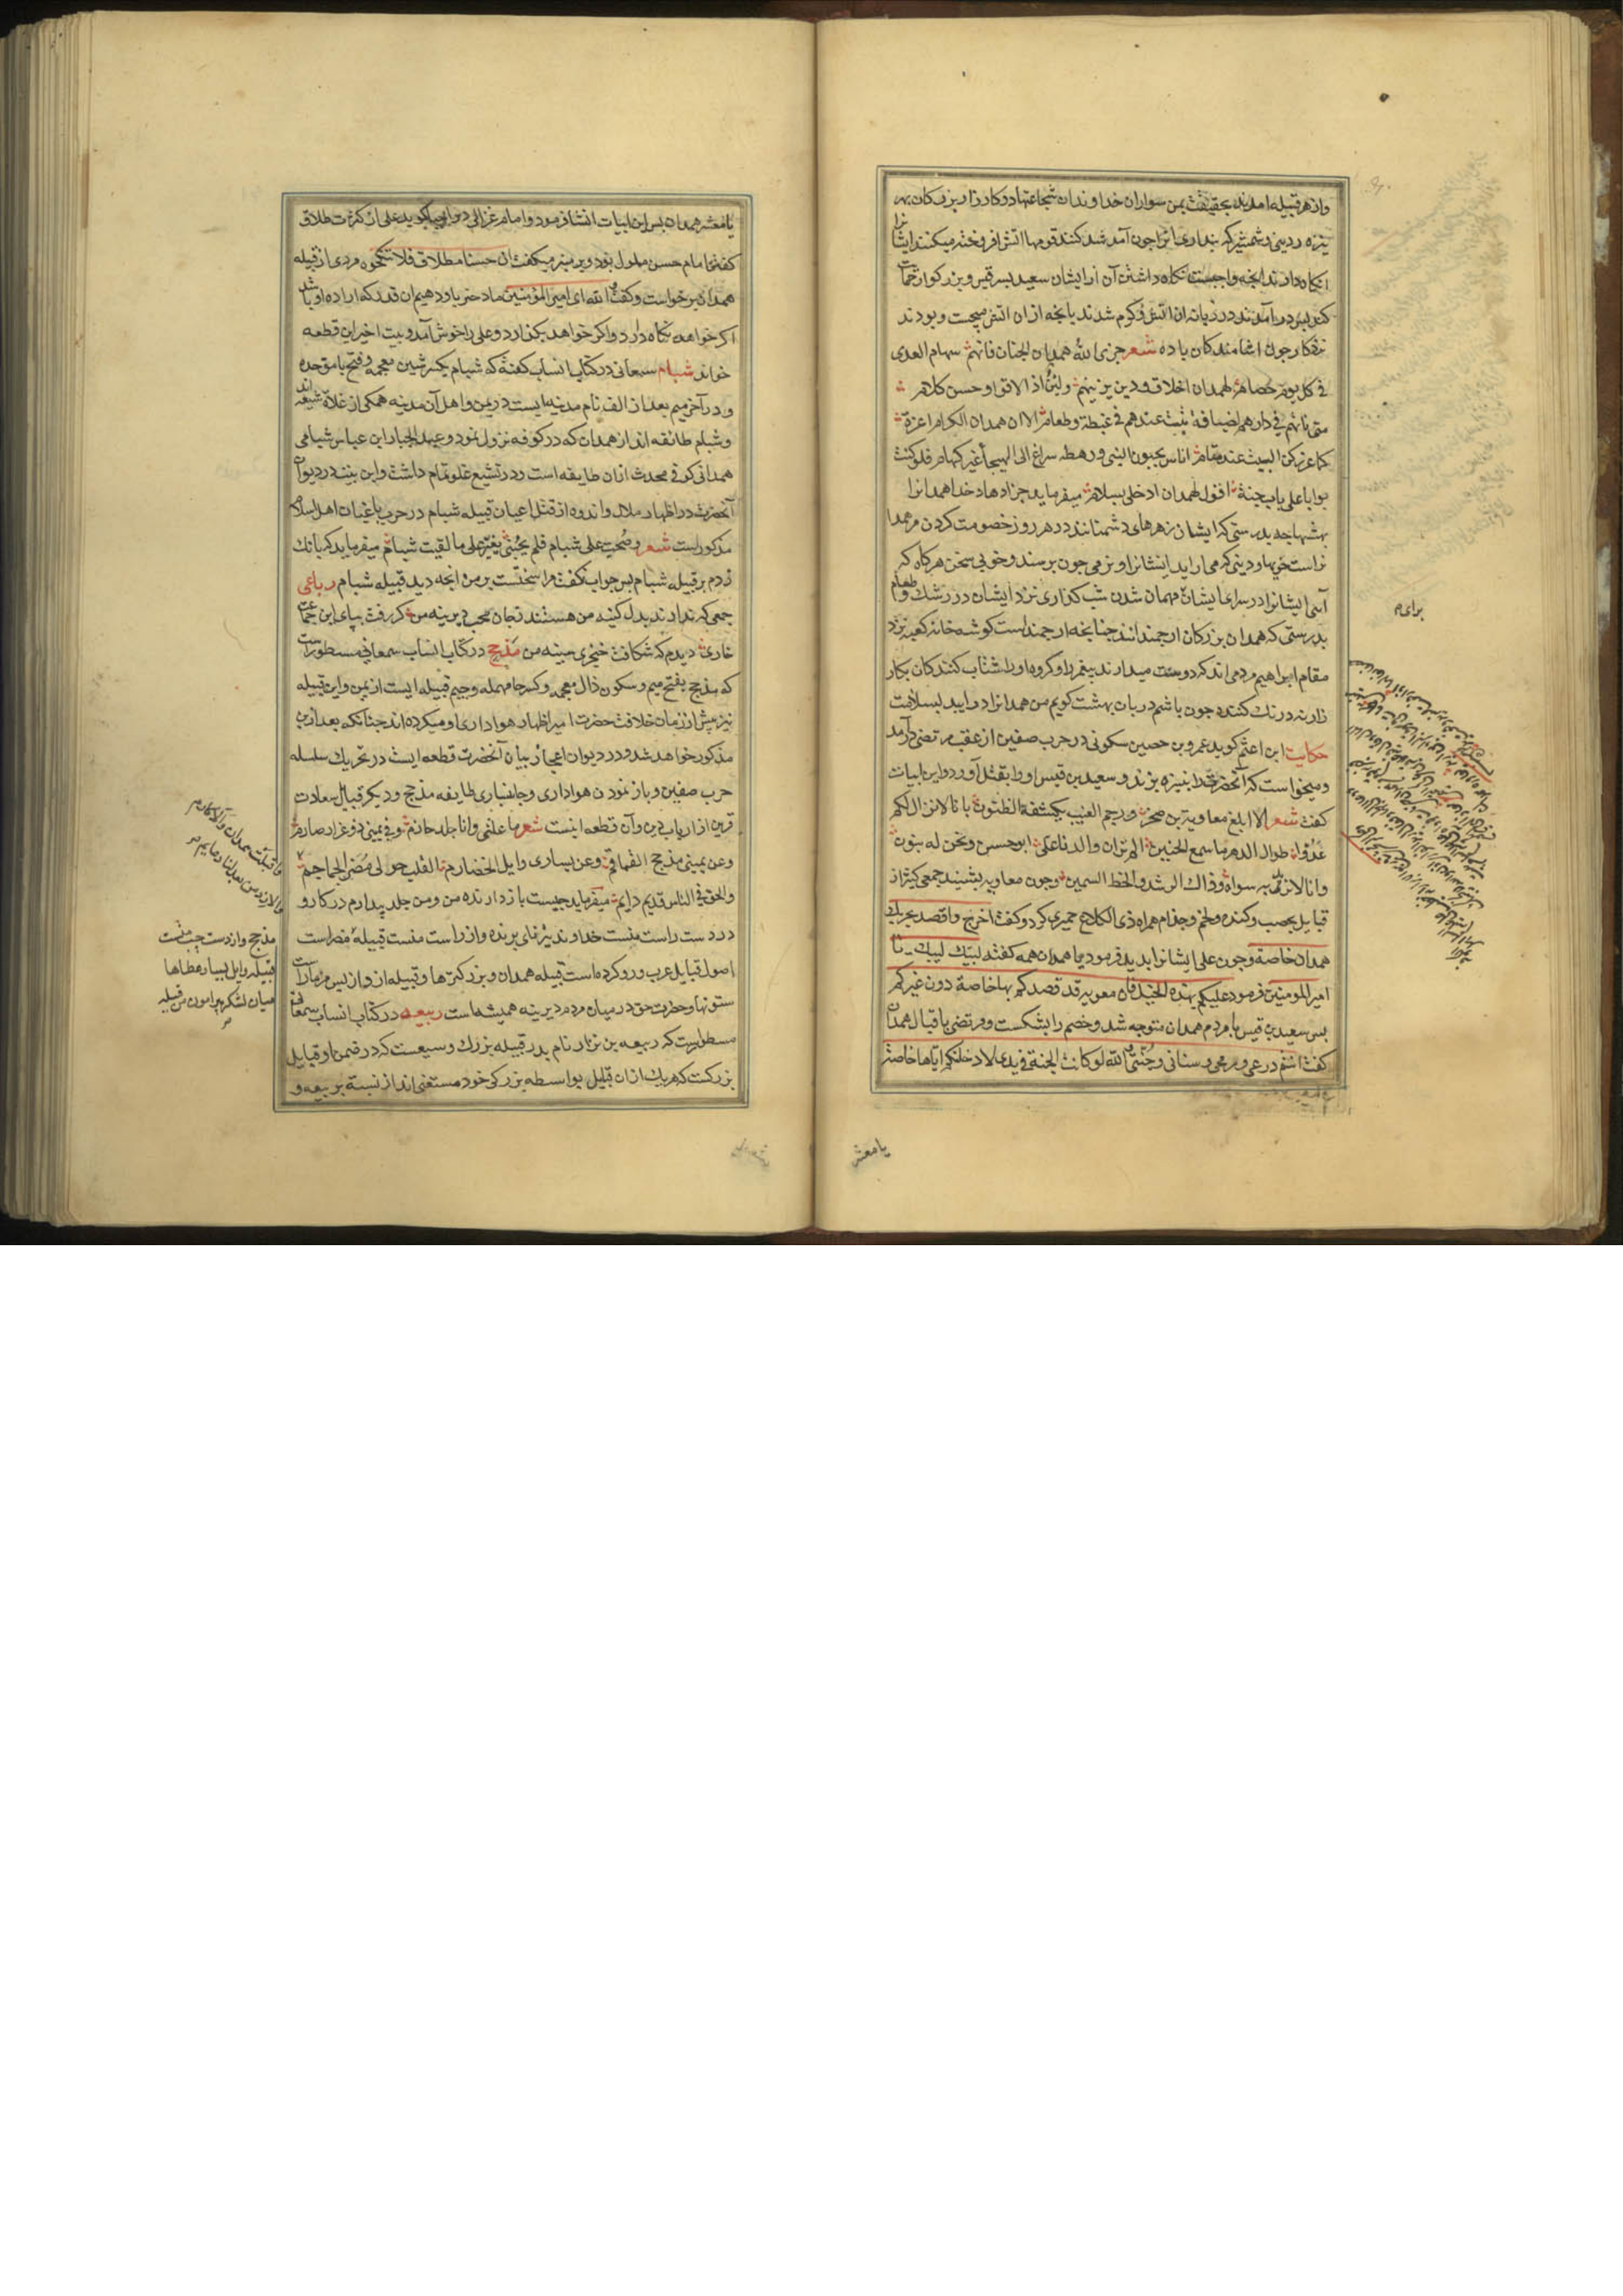 واز هر قبیله امدند بحقیقت بمن سواران خداوندان شجاعتها در کارزار بزرکان بهر
نیزه ردینی وشمشیر که بنداری انرا چون آمد شد کنند قومها اتش افروخته میکنند ایشانرا
نکاه دارند انجه واجبست نکاه داشتن آن از ایشان سعید بسر قیس وبزرکوار حمایت
کند بس در آمدند در زبانه ان اتش وکرم شدند بانجه از ان اتش میجست وبودند
نزد کارزار جون اشامندکان باده شعر جزی الله همدان الجنان فانهم سهام العدی
فی کل یوم خصام لهمدان اخلاق ودین یزینهم ولین اذا لاقوا وحسن کلام
متی تاتهم فی دارهم لضیافة تبت عندهم فی غبطة وطعام الا ان همدان الکرام اعزة
کما عز رکن البیت عند مقام اناس یحبون النبی ورهطه سراع الی الهیجا غیر کهام فلو کنت
بوابا علی باب جنة اقول لهمدان ادخلی بسلام میفرماید جزا دهاد خدا همدانرا
بهشتها جه بدرستی که ایشان زهرهای دشمنانند در هر روز خصومت کردن مر همدا
نراست خویها ودینی که می اراید ایشانرا ونرمی جون برسند وخوبی سخن هرکاه که
آیی ایشانرا در سرای ایشان مهمان شدن شب کذاری نزد ایشان در رشک وطعام
بدرستی که همدان بزرکان ارجمندانند جنانجه ارجمند است کوشه خانه کعبه نزد
مقام ابراهیم مردمی اند که دوست میدارند بیغمبر را وکروه اورا شتاب کنندکان بکار
زار نه درنک کننده جون باشم دربان بهشت کویم من همدانرا درایید بسلامت
حکایت ابن اعثم کوید عمرو بن حصین سکونی در حرب صفین از عقب مرتضی درآمد
ومیخواست که آنحضرت را بنیزه بزند وسعید بن قیس اورا بقتل آورد واین ابیات
کفت شعر الا ابلغ معاویة بن صخر ورجم الغیب یکشفه الظنون بانا لا نزال لکم
عدوا طوال الدهر ما سمع الحنین الم تران والدنا علی ابو حسن ونحن له بنون
وانا لا نرید به سواه وذاک الرشد والحظ السمین وجون معاویه بشنید جمعی کثیر از
قبایل یحصب وکنده ولخم وجذام همراه ذی الکلاع حمیری کرد وکفت اخرج واقصد بحربک
همدان خاصة وجون علی ایشانرا بدید فرمود یا همدان همه کفتند لبیک لبیک یا
امیر المومنین فرمود علیکم بهذه الخیل فان معویه قد قصدکم بها خاصة دون غیرکم
بس سعید بن قیس با مردم همدان متوجه شد وخصم را بشکست ومرتضی با قبال همدان
کفت انتم درعی ورمحی وسنانی وجنتی والله لو کانت الجنة فی یدی لادخلتکم ایاها خاصة
یا معشر
برای م
یا معشر همدان بس این ابیات انشا فرمود وامام غزالی در احیا کوید علی از کثرت طلاق
کفتن امام حسن ملول بود وبر منبر میکفت ان حسنا مطلاق فلا تنکحوه مردی از قبیله
همدان برخواست وکفت والله ای امیر المؤمنین ما دختر باو دهیم ان قدر که اراده او باشد
اکر خواهد نکاه دارد واکر خواهد بکذارد وعلی را خوش آمد وبیت اخیر این قطعه
خواند شبام سمعانی در کتاب انساب کفته که شبام بکسر شین معجمه وفتح با موحده
ودر آخر میم بعد از الف نام مدینه ایست در یمن واهل آن مدینه همکی از غلاة شیعه اند
وشبام طائفه اند از همدان که در کوفه نزول نمود وعبد الجبار ابن عباس شبامی
همدانی کوفی محدث ازان طایفه است ودر تشیع غلو تمام داشت واین بیت در دیوان
آنحضرت در اظهار ملال واندوه از قتل اعیان قبیله شبام در حرب با باغیان اهل اسلام
مذکور است شعر وصحت علی شبام فلم یجبنی یعز علی ما لقیت شبام میفرماید که بانک
زدم بر قبیله شبام بس جواب نکفت مرا سختست بر من انجه دید قبیله شبام رباعی
جمعی که ندارند بدل کینه من هستند بجان محب دیرینه من کر رفت ببای ابن جماعت
خاری دیدم که شکافت خنجری سینه من مذحج در کتاب انساب سمعانی مسطور است
که مذحج بفتح میم وسکون ذال معجمه وکسر حا مهمله وجیم قبیله ایست از یمن واین قبیله
نیز بیش از زمان خلافت حضرت امیر اظهار هواداری او میکرده اند جنانکه بعد ازین
مذکور خواهد شد ودر دیوان اعجاز بیان آنحضرت قطعه ایست در تحریک سلسله
حرب صفین وباز نمودن هواداری وجانسباری طایفه مذحج ودیکر قبایل سعادت
قرین از ارباب دین وآن قطعه اینست شعر ما علتی وانا جلد حازم وفی یمینی ذو غرار صارم
وعن یمینی مذحج القماقم وعن یساری وایل الخضارم القلب حولی مضر الجماجم
والحق فی الناس قدیم دایم میفرماید جیست بازدارنده من ومن جلد بیدارم در کار و
در دست راست منست خداوند تیزنای برنده واز راست منست قبیله مضر است
اصول قبایل عرب ورو کرده است قبیله همدان وبزرکترها وقبیله ازد از بس مر ما راست
ستونها وحضرت حق در میان مردم دیرینه همیشه است ربیعه در کتاب انساب سمعانی
مسطور است که ربیعه بن نزار نام بدر قبیله بزرک وسیعست که در ضمن او قبایل
بزرکست که هر یک ازان قبایل بواسطه بزرکی خود مستغنی اند از نسبة بربیعه و
واقبلت همدان والاکارم
والازد من بعد لنا دعایم
مذحج واز دست جب منست
قبیله وایل بسیار عطاها
میان لشکر بیرامون من قبیله